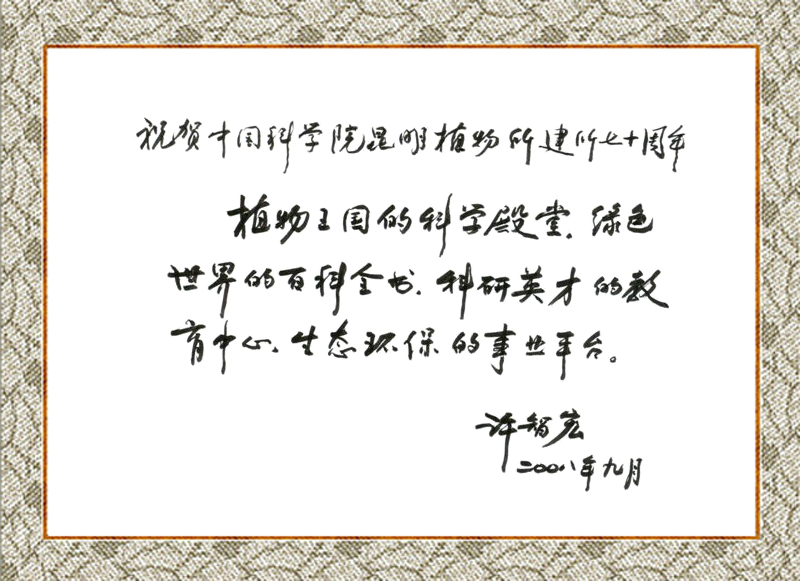 祝贺中国科学院昆明植物所建所七十周年
植物王国的科学殿堂，绿色
世界的百科全书，科研英才的教
育中心、生态环保的事业平台。
许智宏
二〇〇八年九月